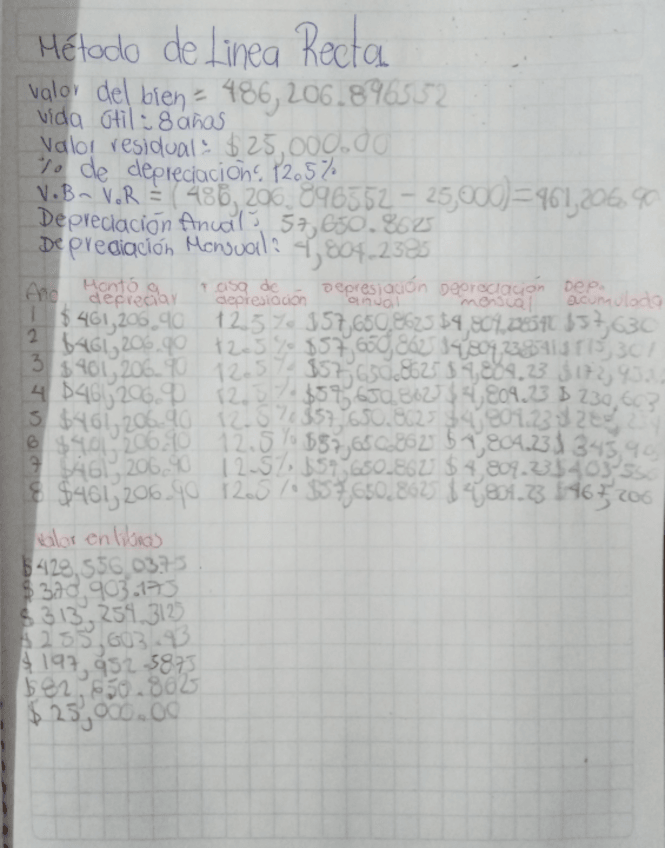 Método de Linea Recta
valor del bien = 486,206.896552
vida útil: 8 años
valor residual: $25,000.00
% de depreciación: 12.5%
V.B - V.R = (486,206.896552 - 25,000) = 461,206.90
Depreciación Anual: 57,650.8625
Depreciación Mensual: 4,804.2385
Año Monto a depreciar Tasa de depresiación Depresiación anual Depreciación mensual Dep. acumulada
1 $461,206.90 12.5% $57,650,8625 $57,630
2 $461,206.90 12.5% $57,650,8625 $115,301
3 $461,206.90 12.5% $57,650.8625 $4,804.23
4 $461,206.90 12.5% $57,650.8625 $4,804.23 $230,603
5 $461,206.90 12.5% $57,650.8625 $4,804.23
6 $461,206.90 12.5% $57,650.8625 $4,804.23
7 $461,206.90 12.5% $57,650.8625 $4,804.23
8 $461,206.90 12.5% $57,650.8625 $4,804.23 $467,206
Valor en libros
$428,556.0375
$370,903.175
$313,254.3125
$255,603.43
$197,952.5875
$82,650.8625
$25,000.00